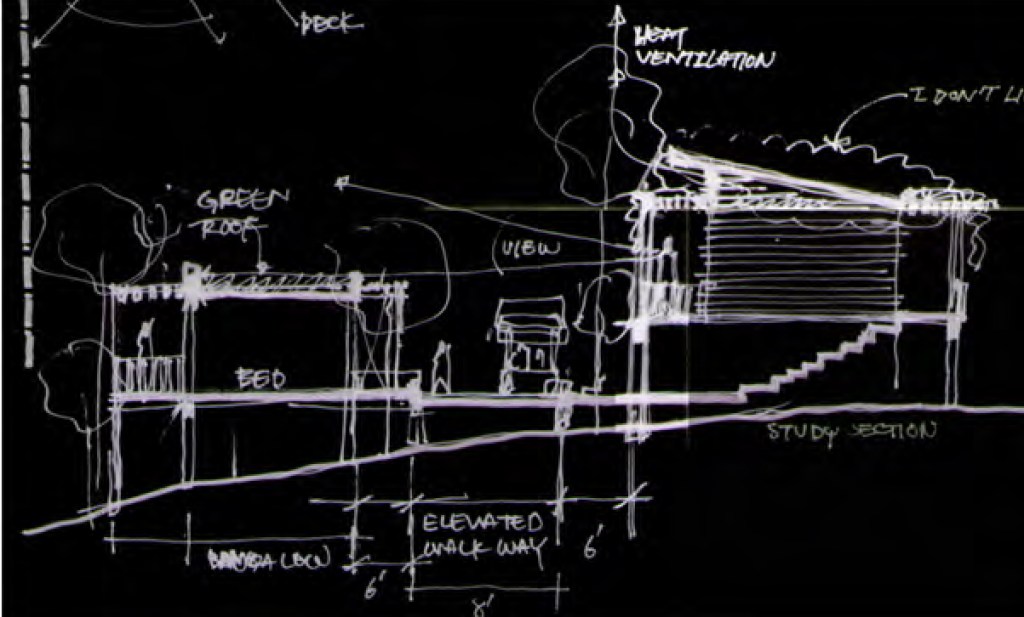 DECK
HEAT
VENTILATION
I DON'T LI
GREEN
ROOF
VIEW
BED
STUDY SECTION
ELEVATED
WALK WAY
6'
6'
8'